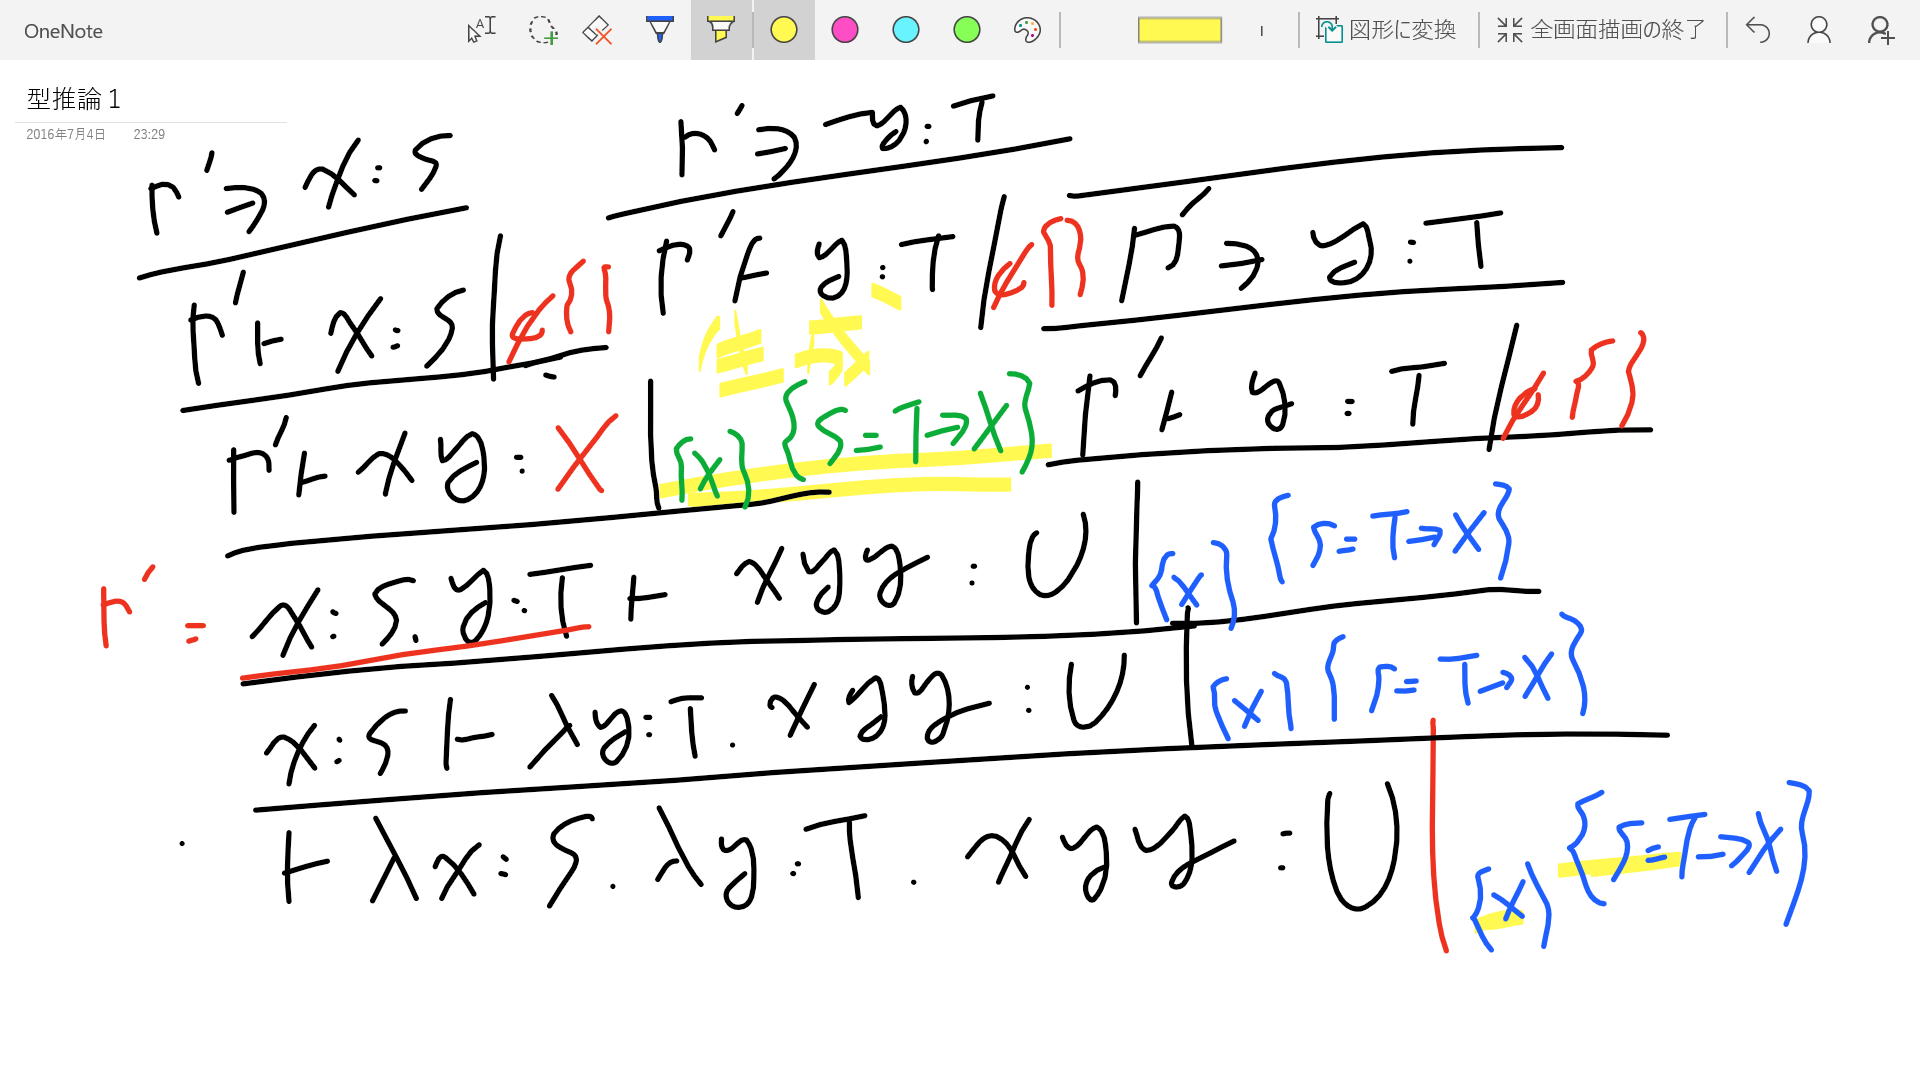 OneNote
図形に変換
全画面描画の終了
型推論 1
2016年7月4日 23:29
Γ'∋x:S
Γ'∋y:T
Γ'⊢x:S|φ{}
Γ'⊢y:T|φ{}
Γ'∋y:T
生成
Γ'⊢xy:X|{X}{S=T→X}
Γ'⊢y:T|φ{}
Γ'= x:S.y:T⊢xyy:U|{X}{S=T→X}
x:S⊢λy:T.xyy:U|{X}{S=T→X}
⊢λx:S.λy:T.xyy:U|{X}{S=T→X}